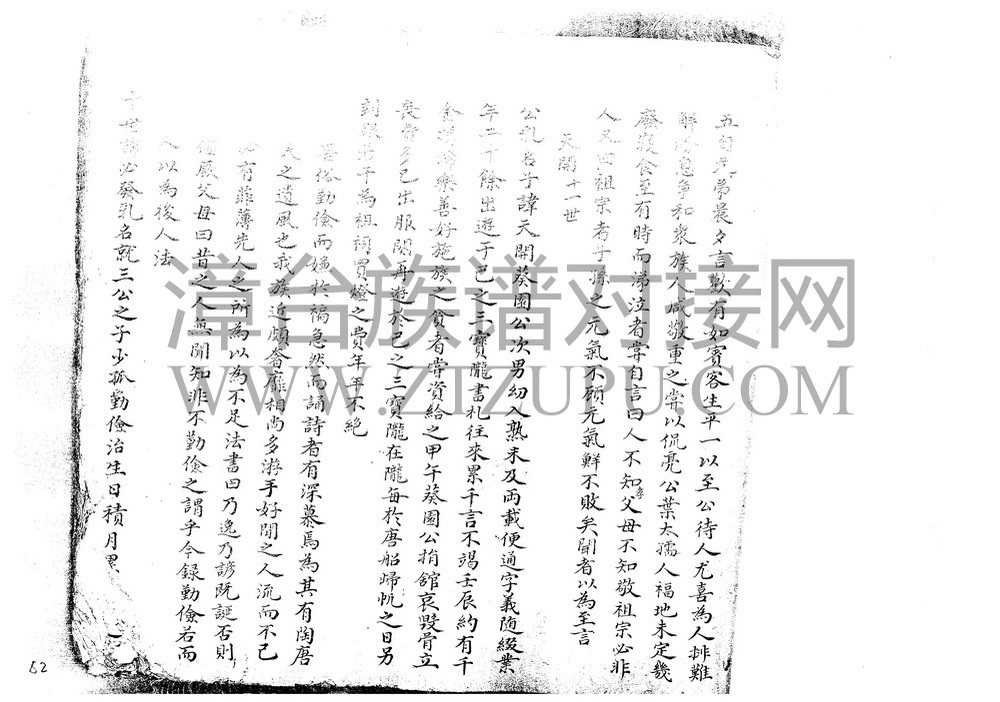 五旬兄弟晨夕言歎有如賓客生平一以至公待人尤喜為人排難
解忿息爭和衆族人咸敬重之常以侃亮公葉太孺人福地未定幾
廢寢食至有時而涕泣者嘗自言曰人不知父母不知敬祖宗必非
人又曰祖宗考子孫之元氣不顧元氣鮮不敗矣聞者以為至言
天開十一世
公乳名子諱天開葵園公次男幼入熟未及兩載便通字義隨綴業
年二十餘出遊于巴之三寶隴書札往來累千言不竭壬辰約有千
金 歸樂善好施族之貧者常資給之甲午葵園公捐舘哀毀骨立
喪 已出服闋再遊於巴之三寶隴在隴每於唐船歸帆之日另
封銀若干為祖祠買燈之費年年不絶
俗勤儉而嫌於陿急然而誦詩者有深慕焉為其有陶唐
氏之遺風也我族近頗奢靡相尚多游手好閒之人流而不已
必有菲薄先人之所為以為不足法書曰乃逸乃諺既誕否則
侮厥父母曰昔之人無聞知非不勤儉之謂乎今録勤儉若而
人以為後人法
十世諱必發乳名就三公之子少孤勤儉治生日積月累
62
漳台族谱对接网
WWW.ZTZUPU.COM